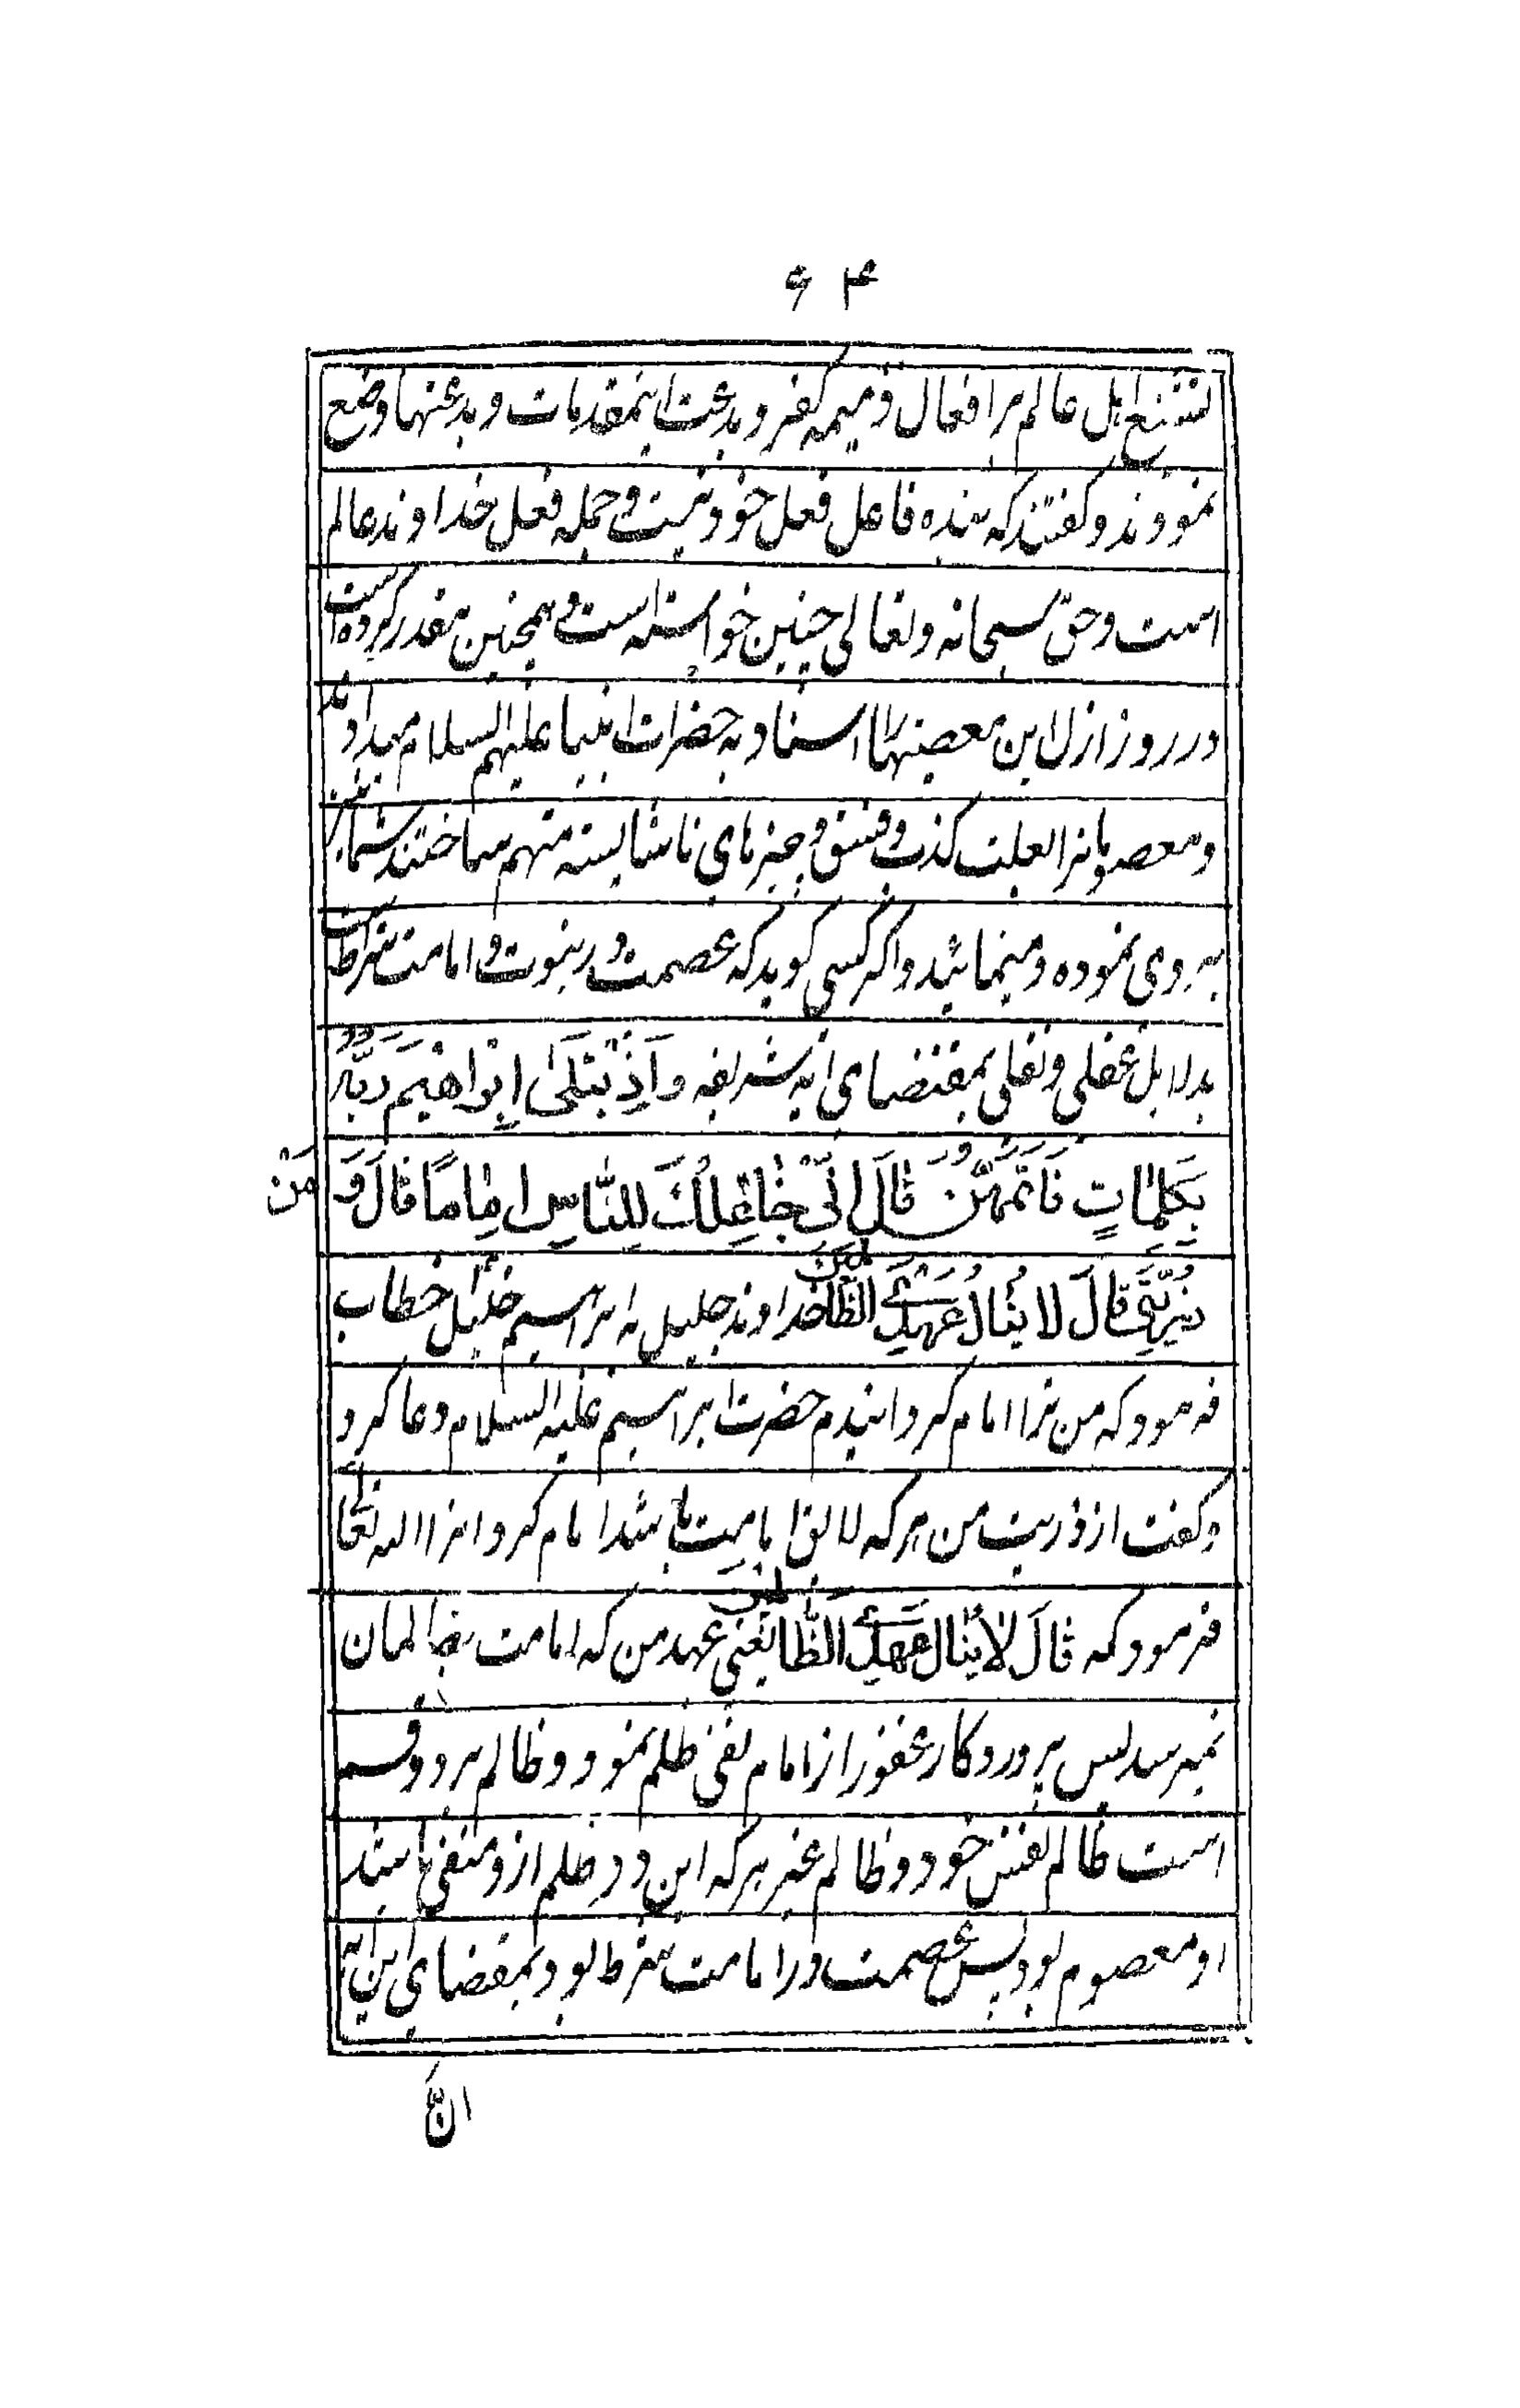 ۶۴
تشنیع اهل عالم برا فعال ذمیمه کفر و بدعت اینمقدمات و بدعتها وضع
نمودند و کفتند که بنده فاعل فعل خود نیست و جمله فعل خداوند عالم
است و حق سبحانه و تعالی چنین خواسته است و همچنین مقدر کرده است
در روز ازل این معصیتها را اسناد به حضرات انبیا علیهم السلام میداد اند
و معصومانرا بعلت کذب و فسق و چیزهای ناشایسته متهم ساختند شما نیز
پیروی نموده و مینمائید و اکر کسی کوید که عصمت در نبوت و امامت شرط است
بدلایل عقلی و نقلی بمقتضای ایه شریفه وَاِذِ ابْتَلَیٰ اِبْرٰاهٖیمَ رَبُّهُ
بِکَلِمٰاتٍ فَاَتَمَّهُنَّ قٰالَ اِنّٖی جٰاعِلُکَ لِلنّٰاسِ اِمٰامًا قٰالَ وَ مَنْ
ذُرِّیَّتٖی قٰالَ لٰا یَنٰالُ عَهْدِی الظّٰالِمٖینَ خداوند جلیل به ابراهیم خلیل خطاب
فرمود که من ترا امام کردانیدم حضرت ابراهیم علیه السلام دعا کرد
و کفت از ذریت من هر که لایق امامت باشد امام کردان الله تعالی
فرمود که قٰالَ لٰا یَنٰالُ عَهْدِی الظّٰالِمٖینَ یعنی عهد من که امامت بظالمان
نمیرسد پس پروردکار غفور از امام نفی ظلم نمود و ظالم بر دو قسم
است ظالم بنفس خود و ظالم غیر هر که این دو ظلم ازو منفی باشد
او معصوم بود پس عصمت در امامت شرط بود بمقتضای این ایه